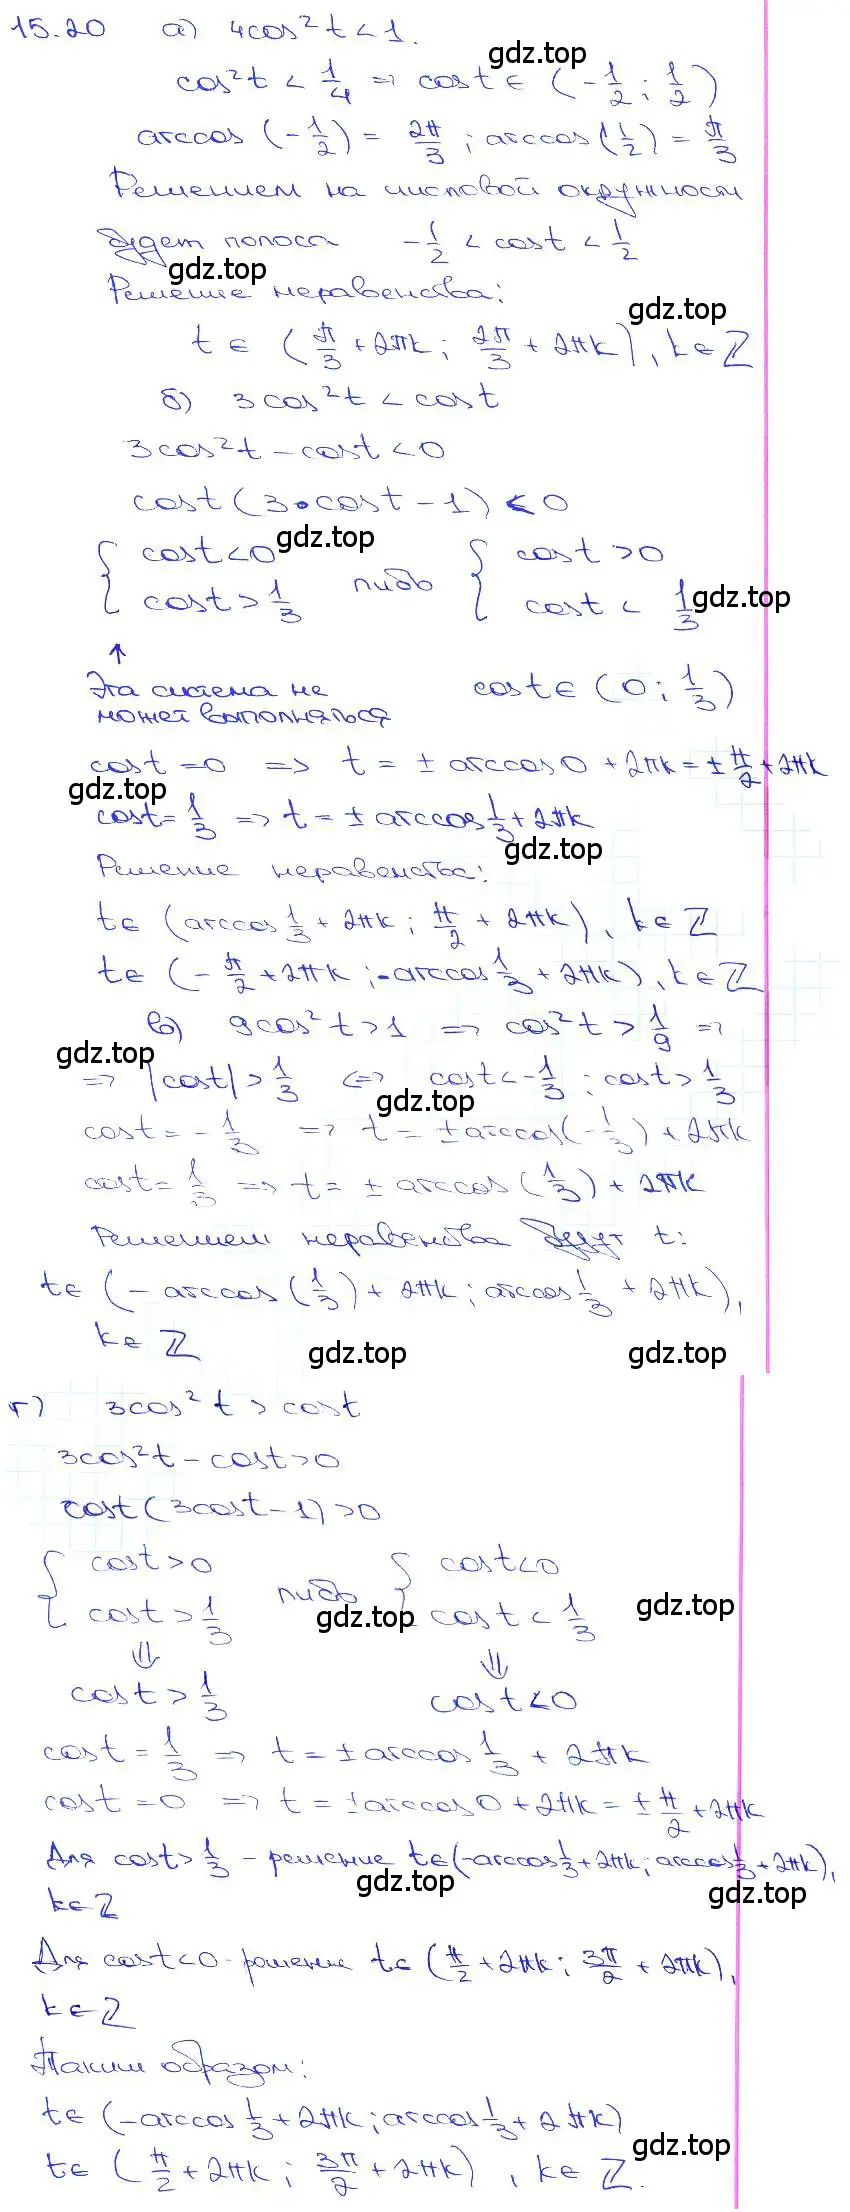 15.20 а) 4cos²t < 1.
gdz.top
cos²t < 1/4 => cost ∈ (-1/2; 1/2)
arccos (-1/2) = 2π/3 ; arccos(1/2) = π/3
Решением на числовой окружности
будет полоса -1/2 < cost < 1/2
gdz.top
Решение неравенства:
gdz.top
t ∈ (π/3 + 2πk; 2π/3 + 2πk), k ∈ ℤ
б) 3cos²t < cost
3cos²t - cost < 0
cost (3·cost - 1) < 0
{ cost < 0 gdz.top { cost > 0
{ cost > 1/3 либо { cost < 1/3 gdz.top
↑
Эта система не cost ∈ (0; 1/3)
может выполняться
cost = 0 => t = ± arccos 0 + 2πk = ± π/2 + 2πk
gdz.top
cost = 1/3 => t = ± arccos 1/3 + 2πk
gdz.top
Решение неравенства:
t ∈ (arccos 1/3 + 2πk; π/2 + 2πk), k ∈ ℤ
t ∈ (-π/2 + 2πk; -arccos 1/3 + 2πk), k ∈ ℤ
в) 9cos²t > 1 => cos²t > 1/9 =>
gdz.top
=> |cost| > 1/3 <=> cost < -1/3 ; cost > 1/3
gdz.top
cost = -1/3 => t = ± arccos(-1/3) + 2πk
cost = 1/3 => t = ± arccos (1/3) + 2πk
Решением неравенства будут t:
t ∈ (-arccos (1/3) + 2πk; arccos 1/3 + 2πk),
k ∈ ℤ
gdz.top gdz.top
г) 3cos²t > cost
3cos²t - cost > 0
cost (3cost - 1) > 0
{ cost > 0 { cost < 0
{ cost > 1/3 либо { cost < 1/3
gdz.top gdz.top
⇓ ⇓
cost > 1/3 cost < 0
cost = 1/3 => t = ± arccos 1/3 + 2πk
cost = 0 => t = ± arccos 0 + 2πk = ± π/2 + 2πk
Для cost > 1/3 - решение t ∈ (-arccos 1/3 + 2πk; arccos 1/3 + 2πk),
gdz.top gdz.top
k ∈ ℤ
Для cost < 0 - решение t ∈ (π/2 + 2πk; 3π/2 + 2πk),
k ∈ ℤ
Таким образом:
t ∈ (-arccos 1/3 + 2πk; arccos 1/3 + 2πk)
gdz.top
t ∈ (π/2 + 2πk; 3π/2 + 2πk), k ∈ ℤ.